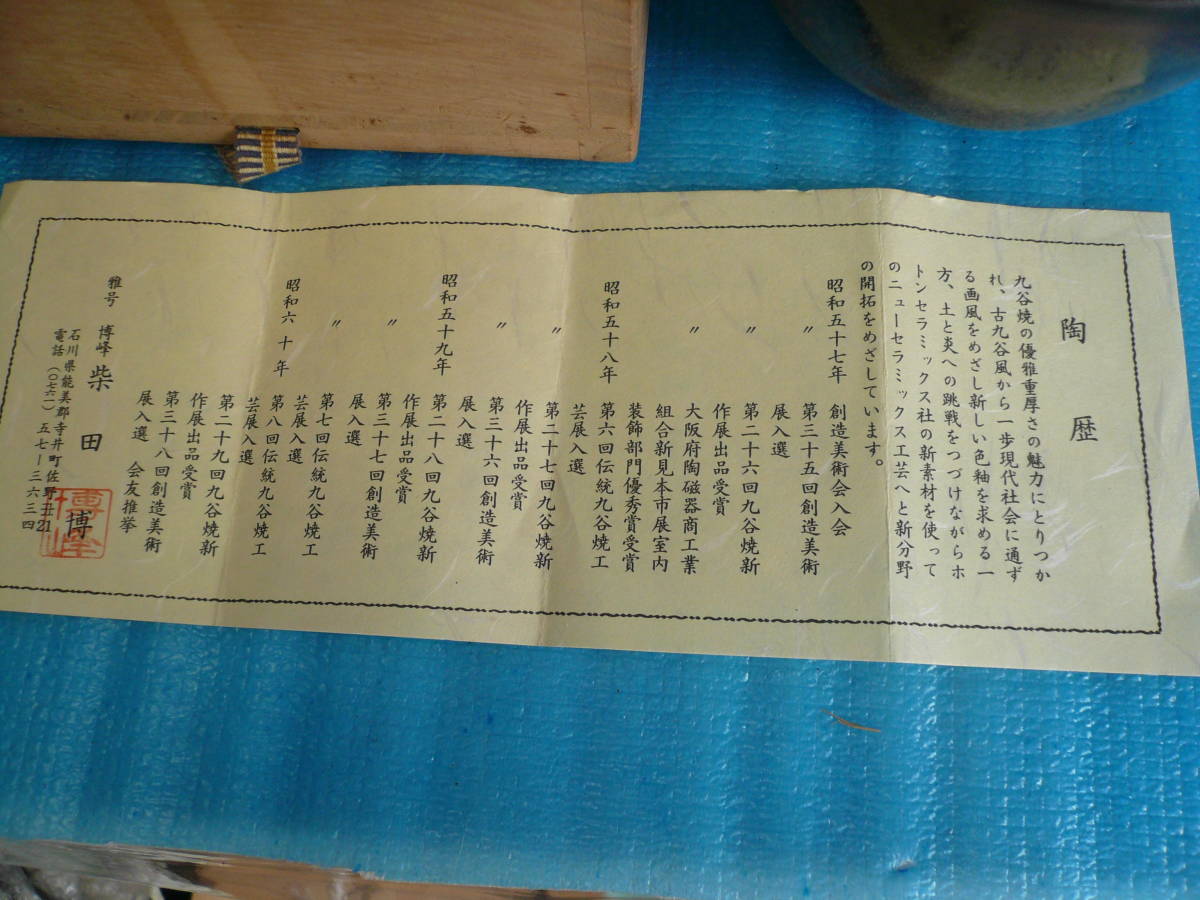 陶歴
九谷焼の優雅重厚さの魅力にとりつか
れ、古九谷風から一歩現代社会に通ず
る画風をめざし新しい色釉を求める一
方、土と炎への挑戦をつづけながらホ
トンセラミックス社の新素材を使って
のニューセラミックス工芸へと新分野
の開拓をめざしています。
昭和五十七年 創造美術会入会
〃 第三十五回創造美術
展入選
〃 第二十六回九谷焼新
作展出品受賞
〃 大阪府陶磁器商工業
組合新見本市展室内
装飾部門優秀賞受賞
昭和五十八年 第六回伝統九谷焼工
芸展入選
〃 第二十七回九谷焼新
作展出品受賞
〃 第三十六回創造美術
展入選
昭和五十九年 第二十八回九谷焼新
作展出品受賞
〃 第三十七回創造美術
展入選
〃 第七回伝統九谷焼工
芸展入選
昭和六十年 第八回伝統九谷焼工
芸展入選
第二十九回九谷焼新
作展出品受賞
第三十八回創造美術
展入選 会友推挙
雅号 博峰 柴田博
石川県能美郡寺井町佐野壬21
電話(〇七六一)五七ー三六三四
博峰